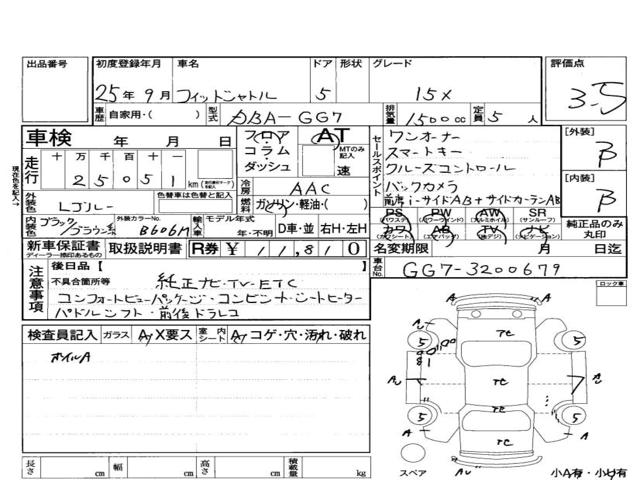 出品番号 初度登録年月 車名 ドア 形状 グレード 評価点
25年9月 フィットシャトル 5 15X 3.5
車歴 自家用・( ) 型式 DBA-GG7 排気量 1500cc 定員 5人
車検 年 月 日 フロア AT セールスポイント ワンオーナー [外装] B
走行 十万千百十 25051 km コラム・ダッシュ MTのみ記入 速 スマートキー
クルーズコントロール
冷房 AAC バックカメラ [内装] B
外装色 Lブルー 色替車は色替と記入 燃料 ガソリン・軽油・( ) 前席i-サイドAB+サイドカーテンAB
PS (パワステ) PW (パワーウインド) AW (アルミホイル) SR (サンルーフ)
内装色 ブラック/ブラウン系 外装カラーNo. B606M 輸入車 モデル年式 年・不明 D車・並 右H・左H カワ (カワシート) AB (エアバッグ) TV (テレビ) ナビ (ナビゲーション) 純正品のみ丸印
新車保証書 ディーラー捺印あるもの 取扱説明書 R券 ¥11,810 名変期限 月 日迄
車台No. GG7-3200679
注意事項 後日品【 】
不具合箇所等 純正ナビ・TV・ETC
コンフォートビューパッケージ・コンビシート・シートヒーター
パドルシフト・前後ドラレコ
ロック車
検査員記入 ガラス A,X要ス 室内シート A,コゲ・穴・汚れ・破れ
オイルA
TC
5 5
81
AU TC 7 AU
TC
5 5
A TC A
スペア AU
小A有・小U有
長さ cm 幅 cm 高さ cm 積載量 kg
現在色を記入→